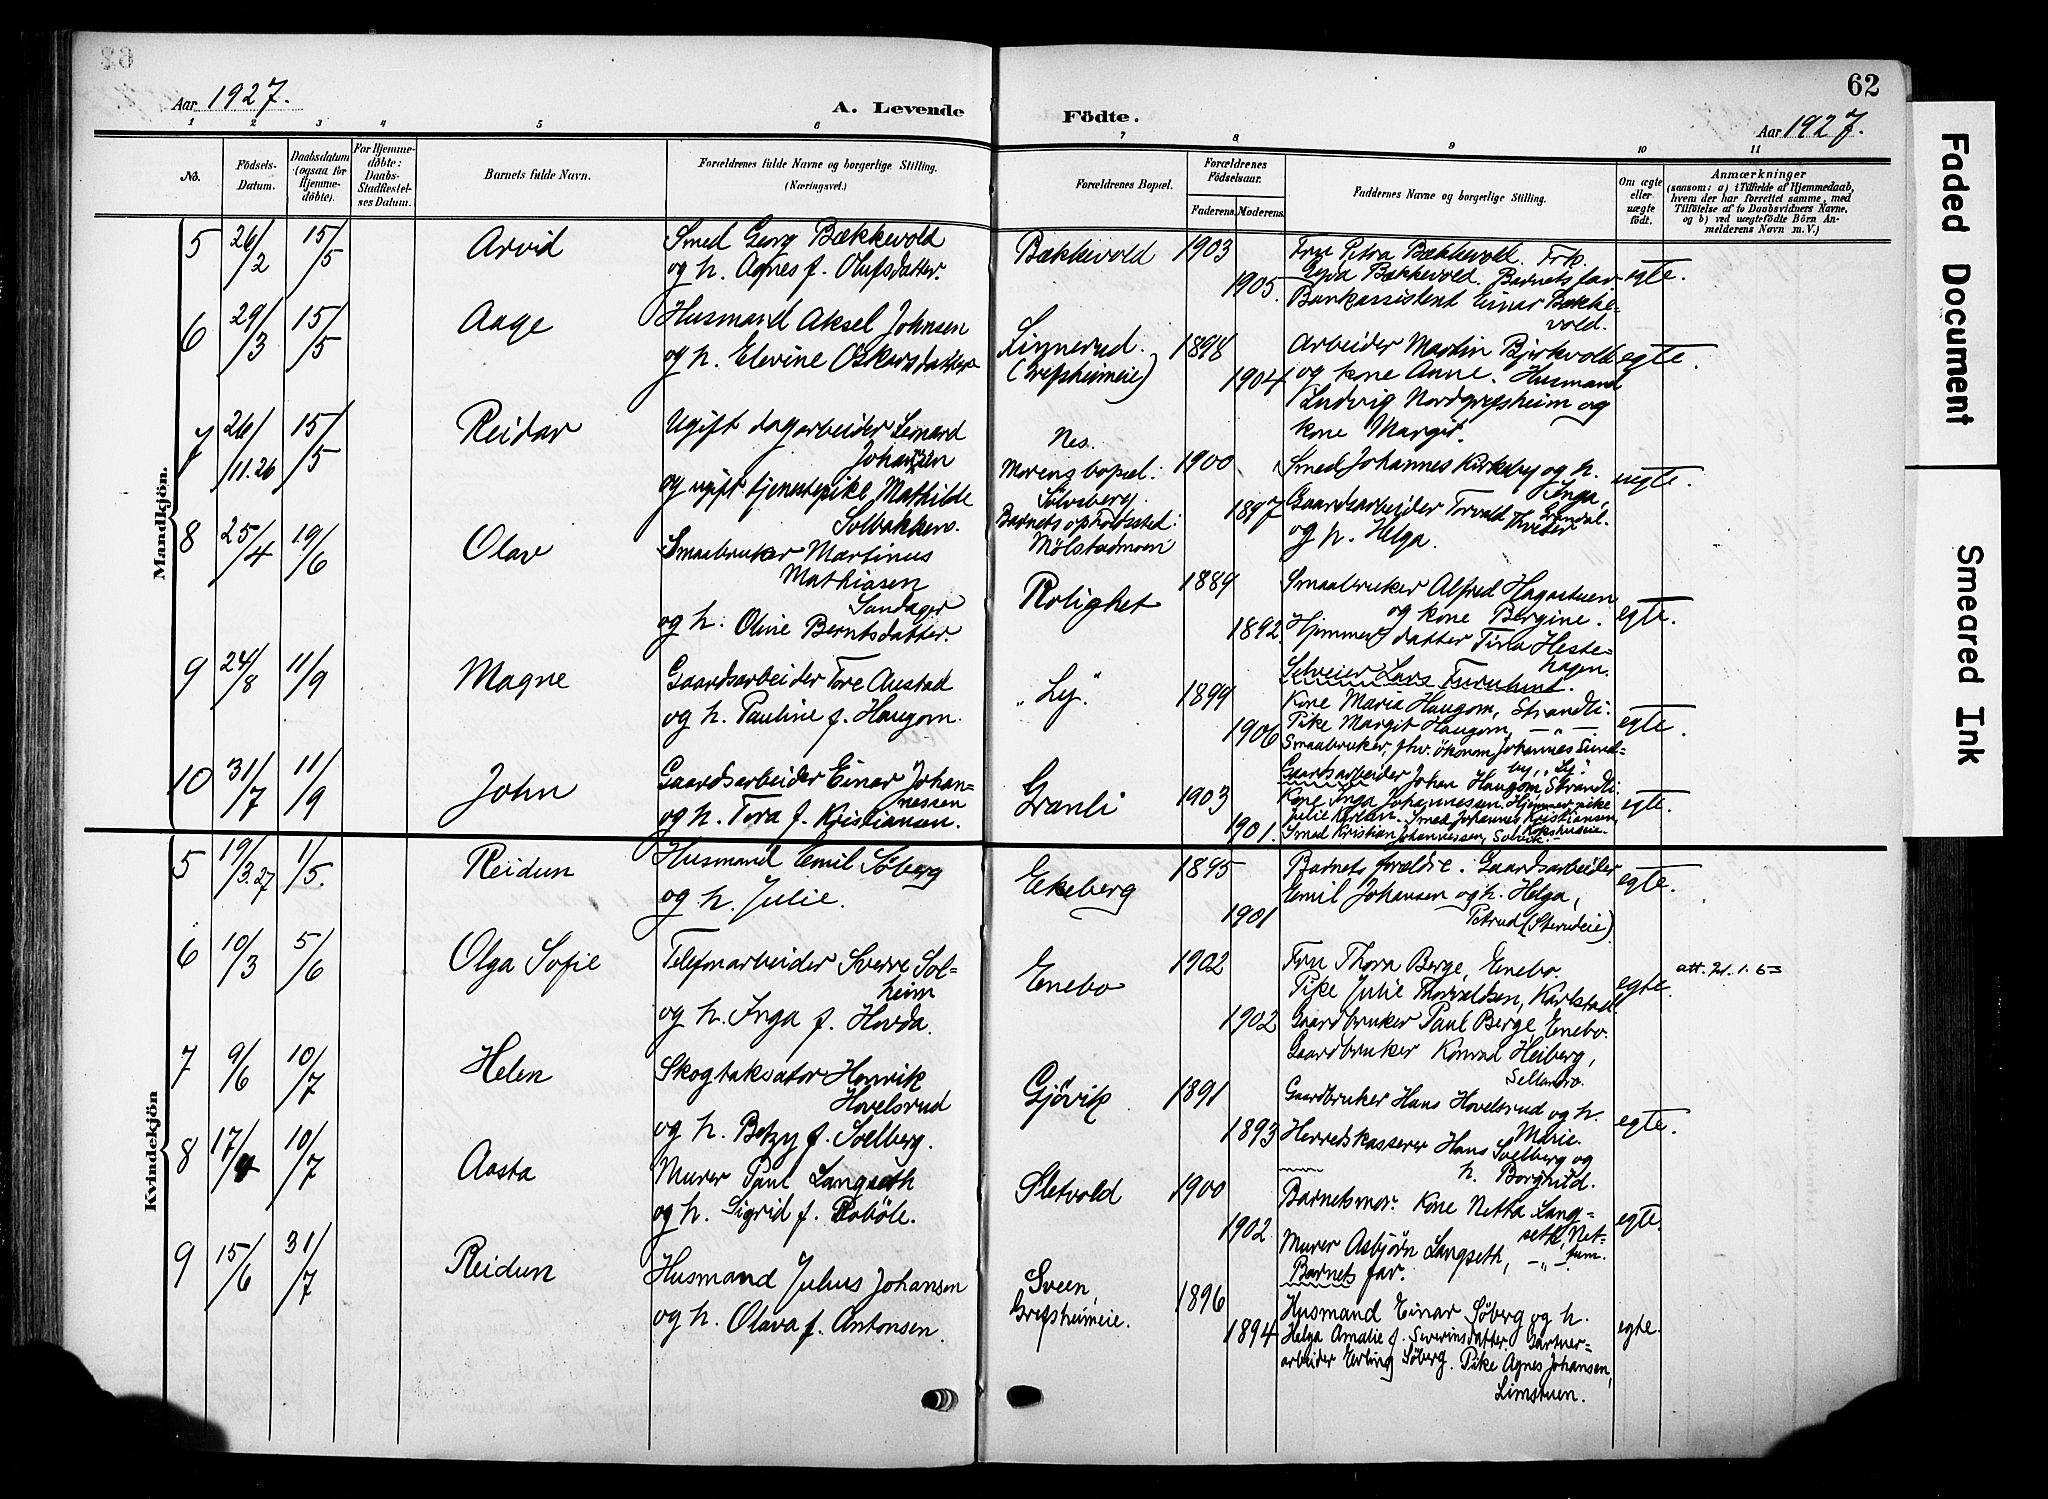 62
Aar 1927.
A. Levende
Födte.
Aar 1927.
62
1 2 3 4 5 6 7 8 9 10 11
No.
Födsels-
Datum.
Daabsdatum
(ogsaa for
Hjemme-
döbte).
For Hjemme-
döbte:
Daabs-
Stadfæstel-
ses Datum.
Barnets fulde Navn.
Forældrenes fulde Navne og borgerlige Stilling.
(Næringsvei.)
Forældrenes Bopæl.
Forældrenes
Födselsaar.
Faderens. Moderens.
Faddernes Navne og borgerlige Stilling.
Om ægte
eller
uægte
födt.
Anmærkninger
(saasom: a) i Tilfælde af Hjemmedaab,
hvem der har forrettet samme, med
Tilföielse af to Daabsvidners Navne,
og b) ved uægtefödte Börn An-
melderens Navn m. V.)
Mandkjön.
5 26/2 15/5 Arvid
Smed Georg Bækkevold
og h. Agnes f. Olufsdatter.
Bækkevold 1903 1905
Frue Petra Bækkevold. Frk.
Bækkevold. Barnets far
Bankassistent Einar Bække-
vold.
egte.
6 29/3 15/5 Aage
Husmand Aksel Johnsen
og h. Elevine Oskarsdatter
Linnerud.
(Grefsheimeie)
1898 1904
Arbeider Martin Bjirkvold
og kone Anne. Husmand
Ludvig Nordgrefsheim og
kone Margit.
egte.
7 26/11.26 15/5 Reidar
Ugift dagarbeider Leonard
Johansen
og ugift tjenestepike Mathilde
Solbakken.
Nes.
Morens bopæl:
Sölvsberg.
Barnets opholdssted:
Mölstadmoen
1900 1897
Smed Johannes Kirkeby og h.
Inga,
Gaardsarbeider Torvald
og h. Helga.
uegte.
8 25/4 19/6 Olav
Smaabruker Martinus
Mathiasen
Sandager
og h. Oline Berntsdatter.
Rolighet 1889 1892
Smaabruker Alfred Hagastuen
og kone Bergine.
Hjemmev. datter Tina Heste-
hagen.
egte.
9 24/8 11/9 Magne
Gaardsarbeider Tore Austad
og h. Pauline f. Haugom.
"Ly." 1899 1906
Selveier Lars Furulund.
Kone Maria Haugom, Strandli.
Pike Margit Haugom, — " —
Smaabruker, fhv. ökonom Johannes Sund-
by, "Ly."
egte.
10 31/7 11/9 John
Gaardsarbeider Einar Johan-
nessen
og h. Tora f. Kristiansen.
Granli 1903 1901.
Gaardsarbeider Johan Haugom, Strandli.
Kone Inga Johannessen. Hjemmev. pike
Julie Karlsen. Smed Johannes Kristiansen,
Smed Kristian Johannessen, Solvik.
egte.
Kvindekjön
5 19/3.27 1/5. Reidun
Husmand Emil Söberg
og h. Julie.
Ekeberg 1895 1901
Barnets forældre. Gaardsarbeider
Emil Johansen og h. Helga,
Petrud (Sterudeie)
egte.
6 10/3 5/6 Olga Sofie
Telefonarbeider Sverre Sol-
heim
og h. Inga f. Hovda.
Enebo 1902 1902
Fru Thora Berge, Enebo.
Pike Julie Thorvaldsen, Karlstad.
Gaardbruker Paul Berge, Enebo.
Gaardbruker Konrad Heiberg,
egte.
att. 21.1.53
7 9/6 10/7 Helen
Skogtaksator Henrik
Hovelsrud
og h. Betzy f. Solberg.
Gjövik 1891 1893
Gaardbruker Hans Hovelsrud og h.
Marie.
Herredskasserer Hans Solberg og
h. Borghild.
egte.
8 17/4 10/7 Aasta
Murer Paul Langseth
og h. Sigrid f. Roböle.
Sletvold 1900 1902
Barnets mor. Kone Netta Lang-
seth, Net-
Murer Asbjörn Langseth, — " —
Barnets far.
egte.
9 15/6 31/7 Reidun
Husmand Julius Johansen
og h. Olava f. Antonsen.
Sveen,
Grefsheimeie.
1896 1894
Husmand Einar Söberg og h.
Helga Amalie f. Severinsdatter. Gartner-
arbeider Erling Söberg. Pike Agnes Johansen,
Limstuen.
egte.
Faded Document
Smeared Ink